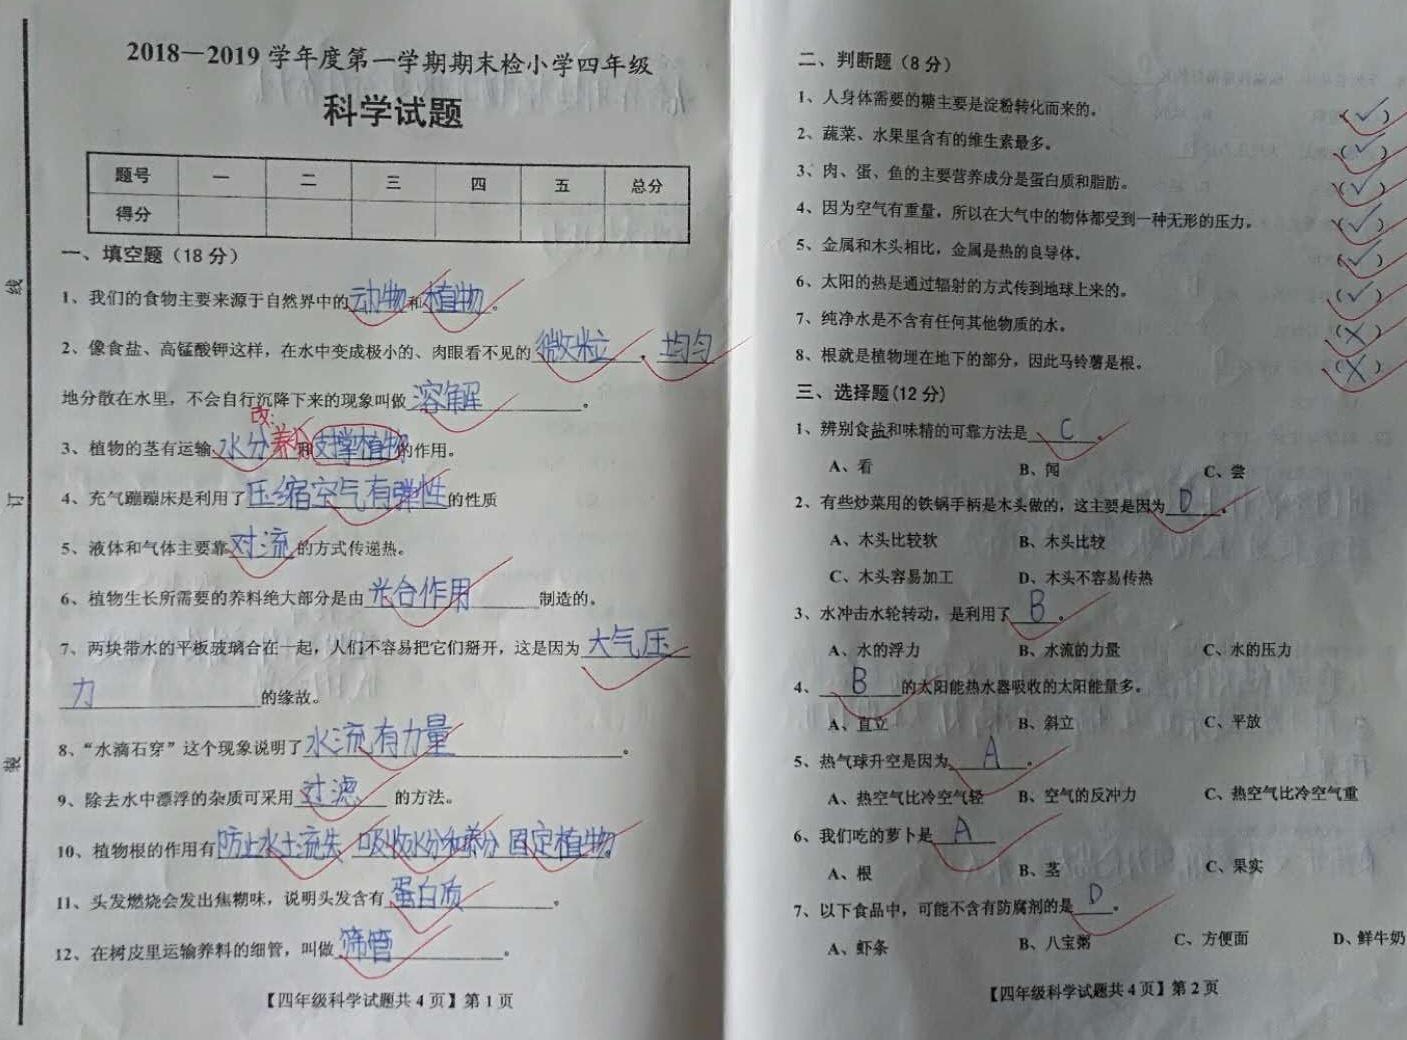 2018—2019 学年度第一学期期末检小学四年级
科学试题
题号 一 二 三 四 五 总分
得分
一、填空题（18 分）
1、我们的食物主要来源于自然界中的动物和植物。
2、像食盐、高锰酸钾这样，在水中变成极小的、肉眼看不见的微粒，均匀
地分散在水里，不会自行沉降下来的现象叫做溶解。
改：
3、植物的茎有运输水分养分和支撑植物的作用。
4、充气蹦蹦床是利用了压缩空气有弹性的性质
5、液体和气体主要靠对流的方式传递热。
6、植物生长所需要的养料绝大部分是由光合作用制造的。
7、两块带水的平板玻璃合在一起，人们不容易把它们掰开，这是因为大气压
力的缘故。
8、“水滴石穿”这个现象说明了水流有力量。
9、除去水中漂浮的杂质可采用过滤的方法。
10、植物根的作用有防止水土流失 吸收水分和养分 固定植物
11、头发燃烧会发出焦糊味，说明头发含有蛋白质。
12、在树皮里运输养料的细管，叫做筛管。
【四年级科学试题共 4 页】第 1 页
线
订
装
二、判断题（8 分）
1、人身体需要的糖主要是淀粉转化而来的。（✓）
2、蔬菜、水果里含有的维生素最多。（✓）
3、肉、蛋、鱼的主要营养成分是蛋白质和脂肪。（✓）
4、因为空气有重量，所以在大气中的物体都受到一种无形的压力。（✓）
5、金属和木头相比，金属是热的良导体。（✓）
6、太阳的热是通过辐射的方式传到地球上来的。（✓）
7、纯净水是不含有任何其他物质的水。（X）
8、根就是植物埋在地下的部分，因此马铃薯是根。（X）
三、选择题(12 分)
1、辨别食盐和味精的可靠方法是C。
A、看 B、闻 C、尝
2、有些炒菜用的铁锅手柄是木头做的，这主要是因为D。
A、木头比较软 B、木头比较
C、木头容易加工 D、木头不容易传热
3、水冲击水轮转动，是利用了B。
A、水的浮力 B、水流的力量 C、水的压力
4、B的太阳能热水器吸收的太阳能量多。
A、直立 B、斜立 C、平放
5、热气球升空是因为A。
A、热空气比冷空气轻 B、空气的反冲力 C、热空气比冷空气重
6、我们吃的萝卜是A
A、根 B、茎 C、果实
7、以下食品中，可能不含有防腐剂的是D。
A、虾条 B、八宝粥 C、方便面 D、鲜牛奶
【四年级科学试题共 4 页】第 2 页